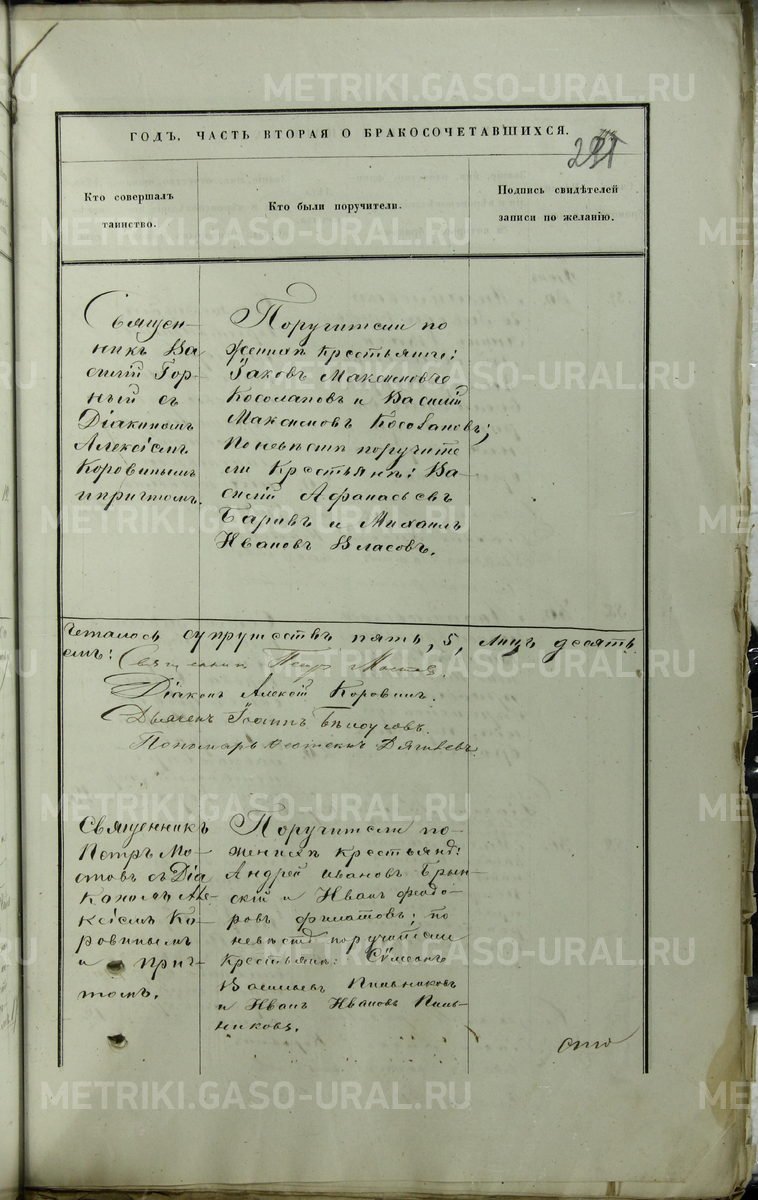 METRIKI.GASO-URAL.RU
ГОДЪ. ЧАСТЬ ВТОРАЯ О БРАКОСОЧЕТАВШИХСЯ.
Кто совершалъ
таинство.
Кто были поручители.
Подпись свидѣтелей
записи по желанію.
Священ-
никъ Ва
силій Гор-
ный съ
Діакономъ
Алексіемъ
Коровинымъ
и причтомъ.
Поручители по
женихѣ крестьяне:
Іаковъ Максимовъ
Косолаповъ и Василій
Максимовъ Косолаповъ;
По невѣстѣ поручите
ли Крестьяне: Ва-
силій Афанасьевъ
и Михаилъ
Ивановъ Власовъ.
четалось супружествъ пять, 5, лицъ десять
Священникъ Петръ Мостовъ.
Діаконъ Алексій Коровинъ.
Дьячекъ Іоаннъ Бѣлоусовъ.
Пономарь
Священникъ
Петръ Мо-
стовъ съ Діа
кономъ Але-
ксіемъ Ко-
ровинымъ
и прич-
томъ.
Поручители по
женихѣ крестьяне:
Андрей Ивановъ Брын-
скій и Иванъ Феодо-
ровъ Филатовъ; по
невѣстѣ поручители
крестьяне: Сѵмеонъ
Васильевъ Пильниковъ
и Иванъ Ивановъ Пиль-
никовъ.